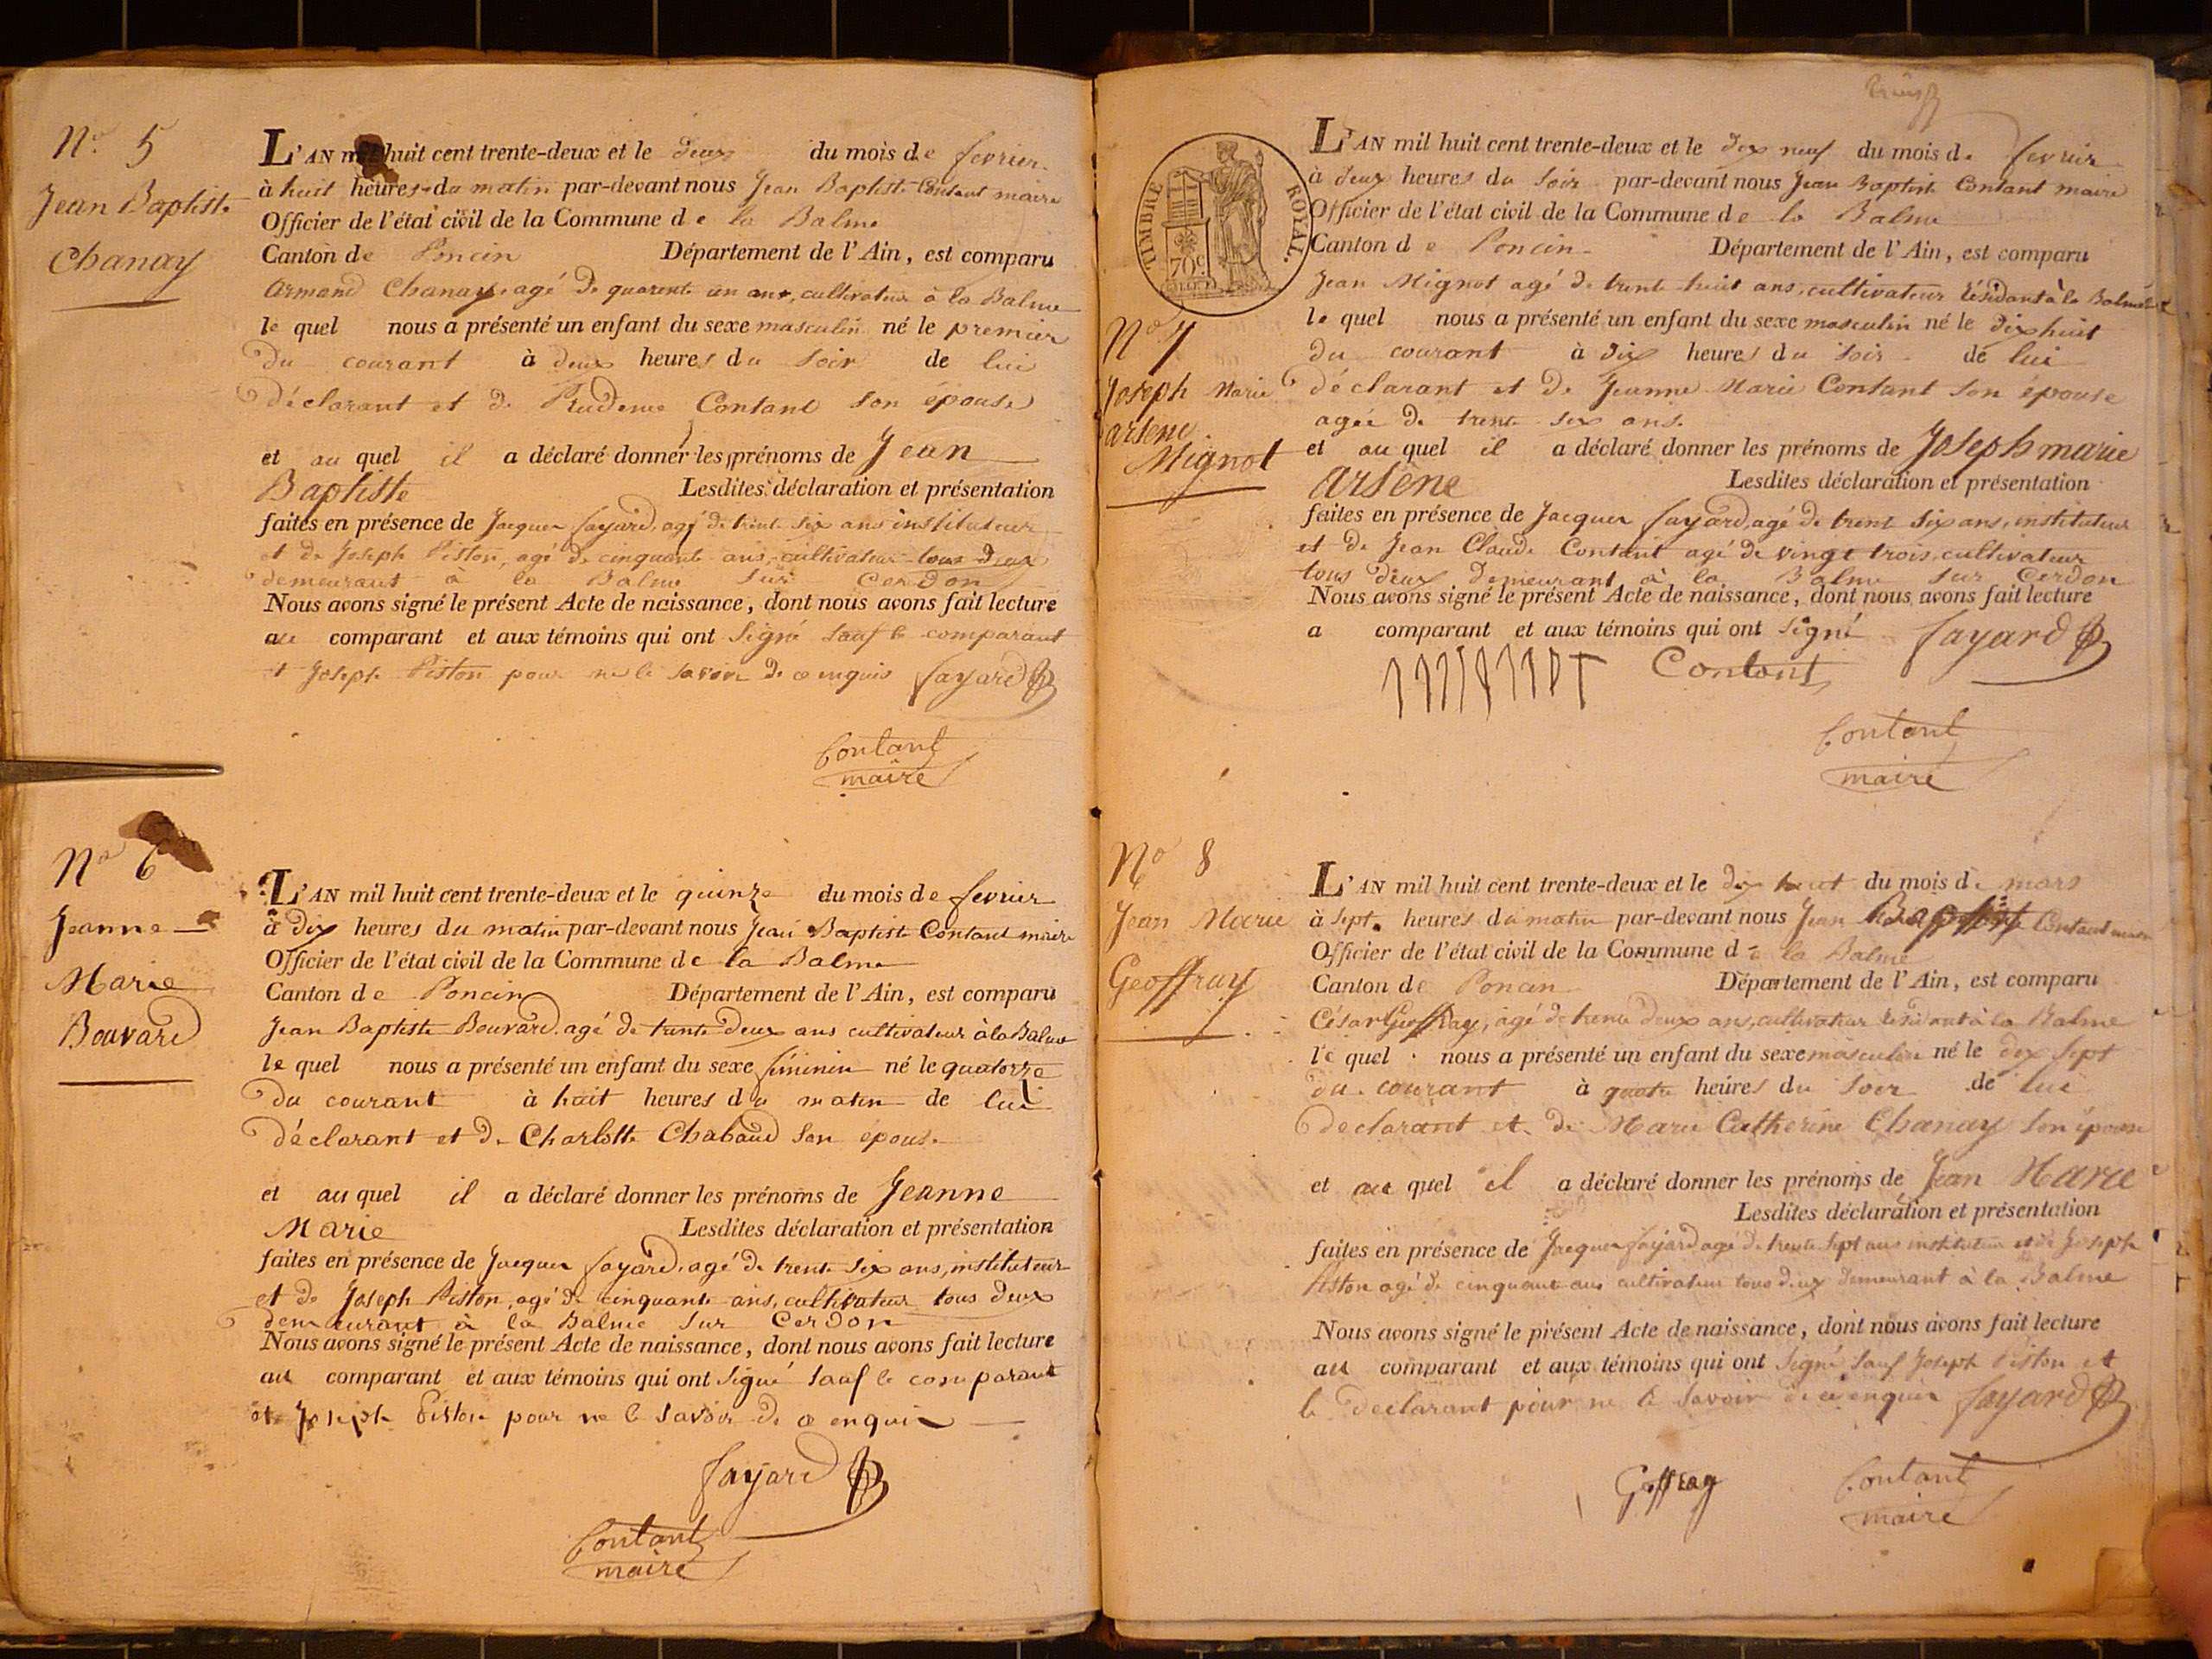 N.o 5
Jean Baptiste
Chanay
L'AN mil huit cent trente-deux et le deux du mois de fevrier
à huit heures du matin par-devant nous Jean Baptiste Contant maire
Officier de l'état civil de la Commune de la Balme
Canton de Poncin Département de l'Ain, est comparu
Armand Chanay, agé de quarente un ans, cultivateur à la Balme
le quel nous a présenté un enfant du sexe masculin né le premier
du courant à deux heures du soir de lui
déclarant et de Prudence Contant son épouse
et au quel il a déclaré donner les prénoms de Jean
Baptiste Lesdites déclaration et présentation
faites en présence de Jacques fayard, agé de trente six ans instituteur
et de Joseph Piston, agé de cinquante ans, cultivateur tous deux
demeurant à la Balme sur Cerdon
Nous avons signé le présent Acte de naissance, dont nous avons fait lecture
au comparant et aux témoins qui ont signé sauf le comparant
et Joseph Piston pour ne le savoir de ce enquis fayard
Contant
maire
N.o 6
Jeanne
Marie
Bouvard
L'AN mil huit cent trente-deux et le quinze du mois de fevrier
à dix heures du matin par-devant nous Jean Baptiste Contant maire
Officier de l'état civil de la Commune de la Balme
Canton de Poncin Département de l'Ain, est comparu
Jean Baptiste Bouvard, agé de trente deux ans cultivateur à la Balme
le quel nous a présenté un enfant du sexe féminin né le quatorze
du courant à huit heures du matin de lui
déclarant et de Charlotte Chabaud son épouse
et au quel il a déclaré donner les prénoms de Jeanne
Marie Lesdites déclaration et présentation
faites en présence de Jacques fayard, agé de trente six ans, instituteur
et de Joseph Piston, agé de cinquante ans, cultivateur tous deux
demeurant à la Balme sur Cerdon
Nous avons signé le présent Acte de naissance, dont nous avons fait lecture
au comparant et aux témoins qui ont signé sauf le comparant
et Joseph Piston pour ne le savoir de ce enquis
fayard
Contant
maire
TIMBRE ROYAL.
70c
N.o 7
Joseph Marie
arsene
Mignot
L'AN mil huit cent trente-deux et le dix neuf du mois de fevrier
à deux heures du soir par-devant nous Jean Baptiste Contant maire
Officier de l'état civil de la Commune de la Balme
Canton de Poncin Département de l'Ain, est comparu
Jean Mignot agé de trente huit ans, cultivateur résidant à la Balme
le quel nous a présenté un enfant du sexe masculin né le dix huit
du courant à dix heures du soir de lui
déclarant et de Jeanne Marie Contant son épouse
agée de trente six ans.
et au quel il a déclaré donner les prénoms de Joseph marie
arsène Lesdites déclaration et présentation
faites en présence de Jacques fayard, agé de trente six ans, instituteur
et de Jean Claude Contant agé de vingt trois, cultivateur
tous deux demeurant à la Balme sur Cerdon
Nous avons signé le présent Acte de naissance, dont nous avons fait lecture
a comparant et aux témoins qui ont signé fayard
Contant
Contant
maire
N.o 8
Jean Marie
Geoffray
L'AN mil huit cent trente-deux et le dix huit du mois de mars
à sept heures du matin par-devant nous Jean Baptiste Contant maire
Officier de l'état civil de la Commune de la Balme
Canton de Poncin Département de l'Ain, est comparu
César Geoffray, agé de trente deux ans, cultivateur résidant à la Balme
le quel nous a présenté un enfant du sexe masculin né le dix sept
du courant à quatre heures du soir de lui
declarant et de Marie Catherine Chanay son épouse
et au quel il a déclaré donner les prénoms de Jean Marie
Lesdites déclaration et présentation
faites en présence de Jacques fayard agé de trente sept ans instituteur et de Joseph
Piston agé de cinquante ans cultivateur tous deux demeurant à la Balme
Nous avons signé le présent Acte de naissance, dont nous avons fait lecture
au comparant et aux témoins qui ont signé sauf Joseph Piston et
le declarant pour ne le savoir de ce enquis fayard
Geffray
Contant
maire